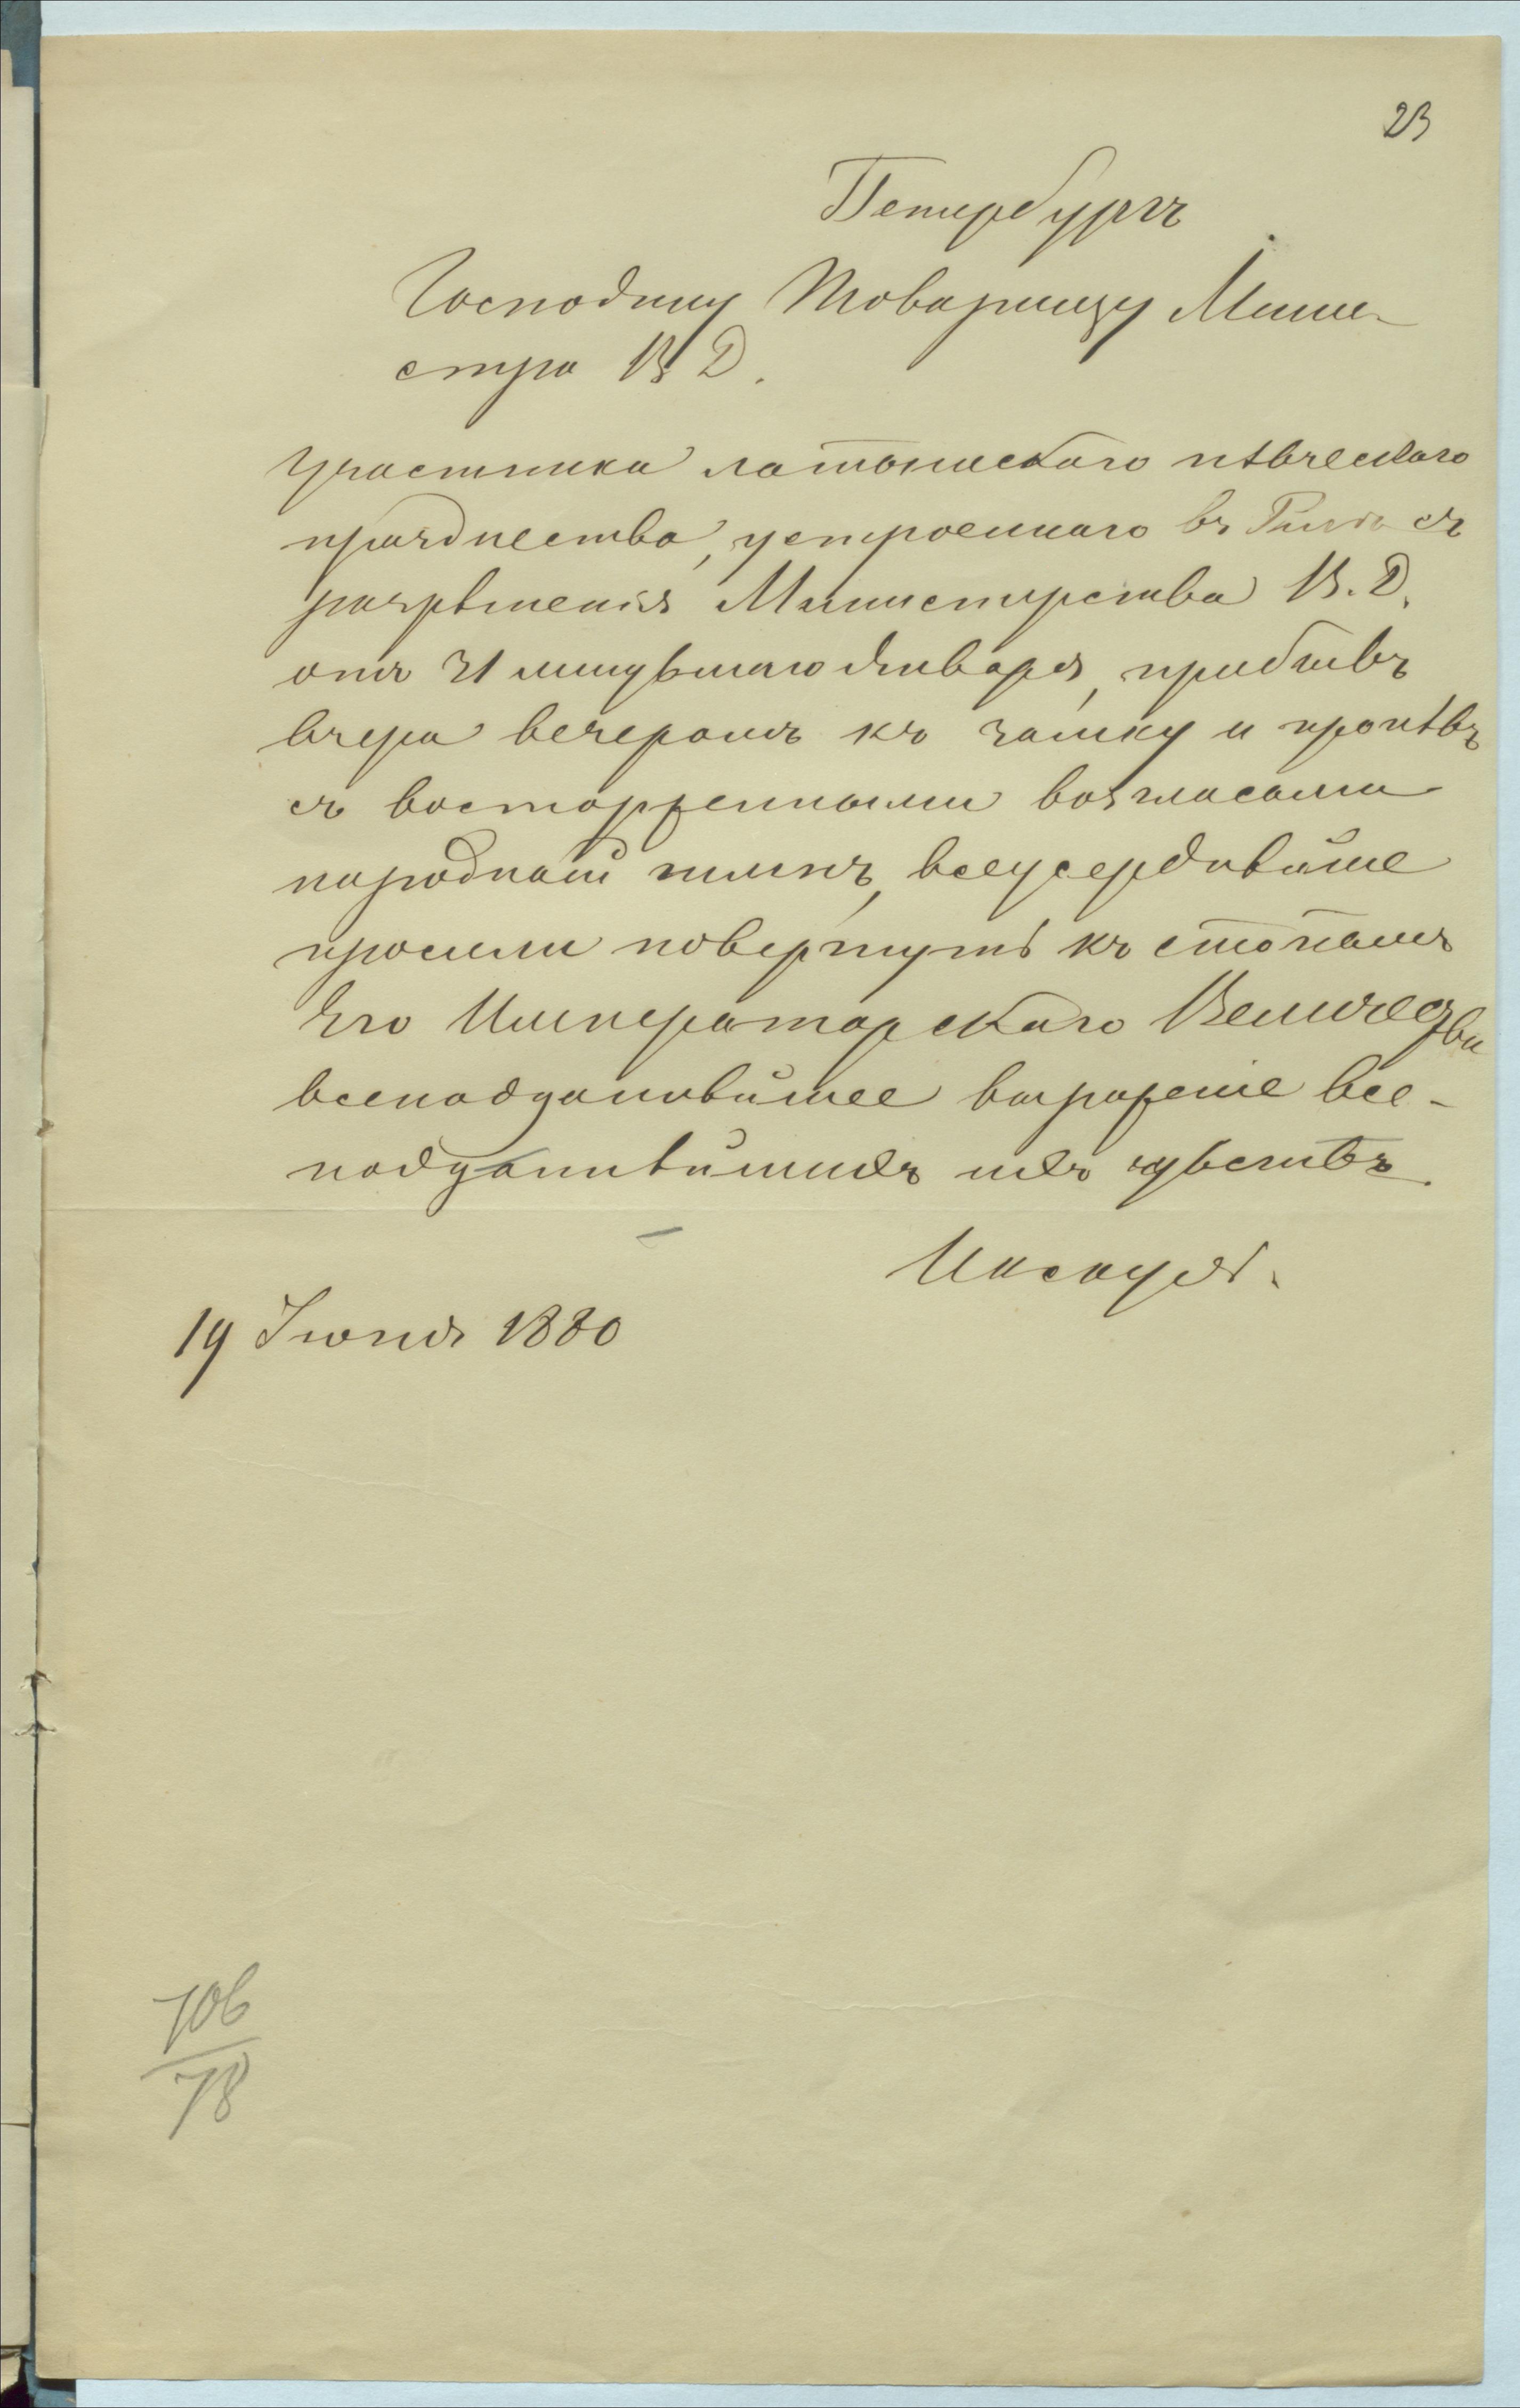 23
Петербургъ
Господину Товарищу Мини-
стра В Д.
Участники латышскаго пѣвческаго
празднества, устроеннаго въ Ригѣ съ
разрѣшенія Министерства В. Д.
отъ 31 минувшаго Января, прибывъ
вчера вечеромъ къ замку и пропѣвъ
съ восторженными возгласами
народный гимнъ, всеусерднѣйше
просили повергнуть къ стопамъ
Его Императорскаго Величества
всеподданнѣйшее выраженіе все-
подданнѣйшихъ ихъ чувствъ.
19 Іюня 1880
106
78